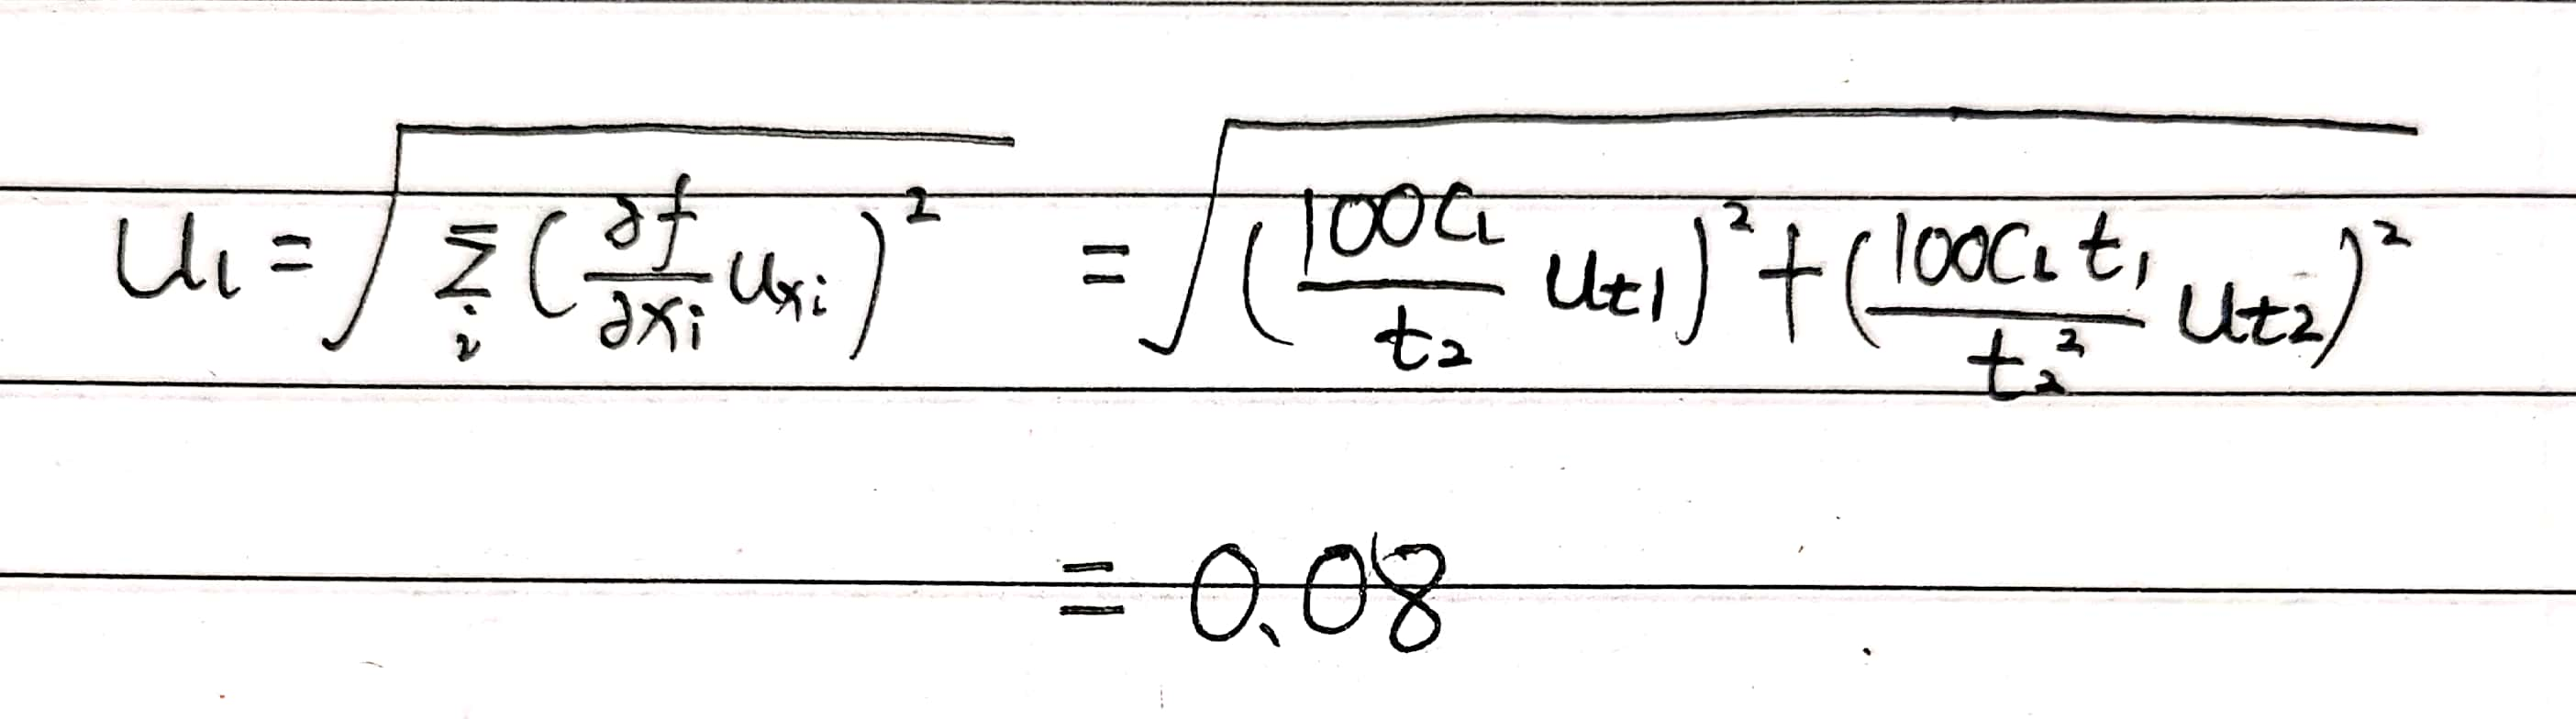 U₁ = √(∑ᵢ (∂f/∂xᵢ uₓᵢ)²) = √((100C₁/t₂ u_t1)² + (100C₁t₁/t₂² u_t2)²)
= 0.08